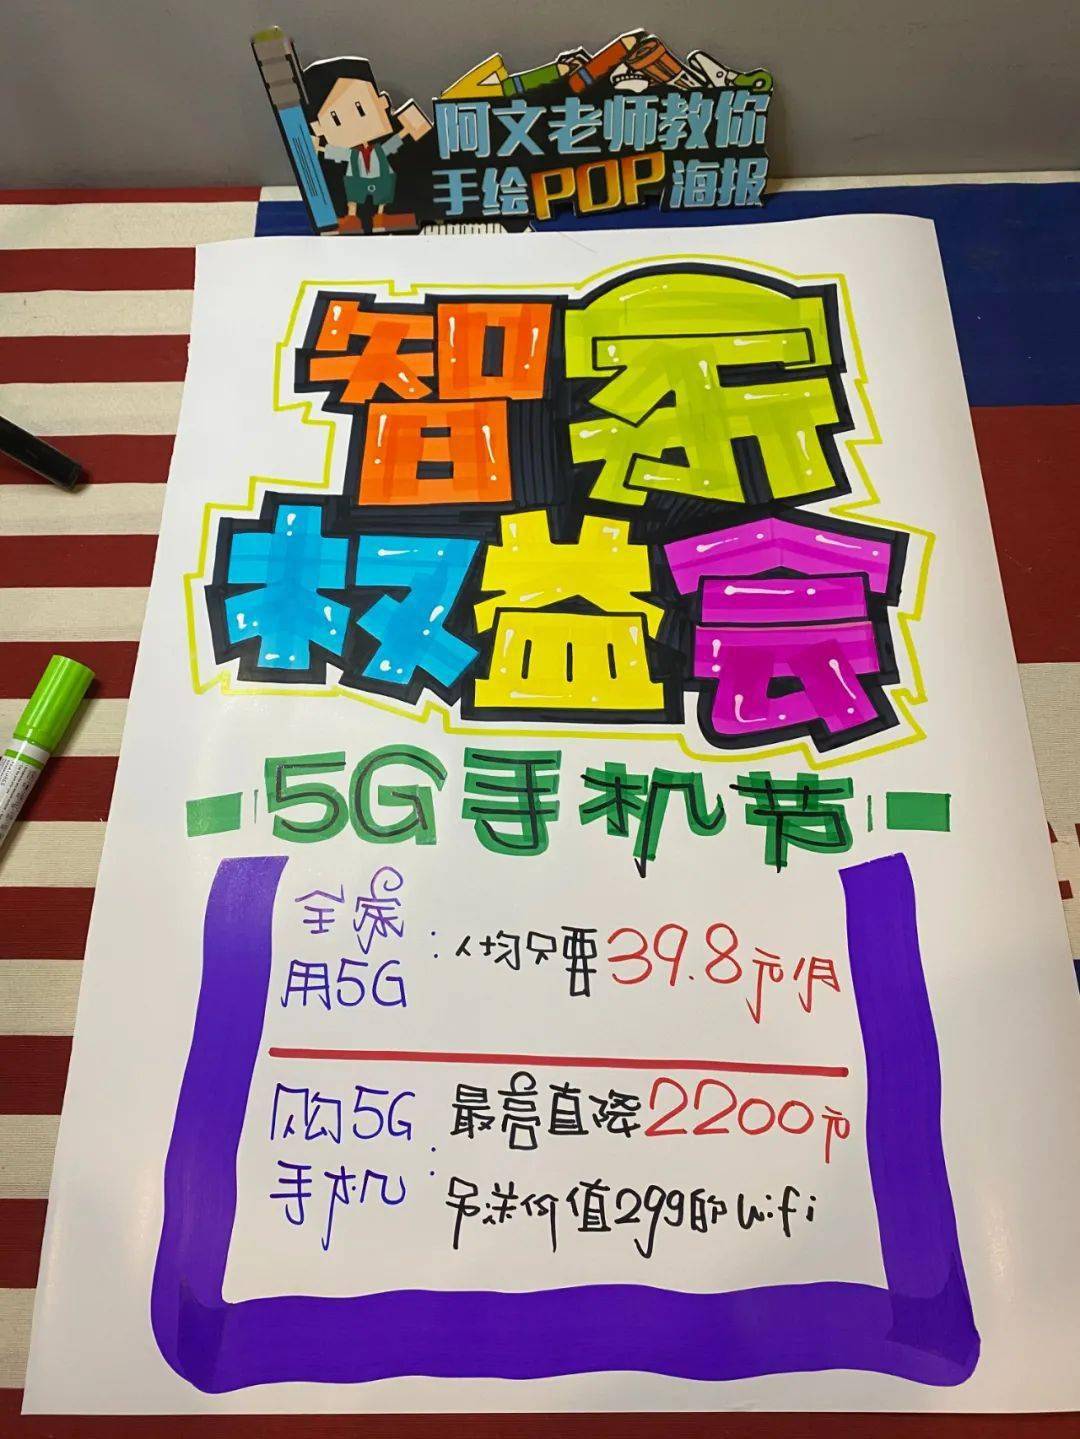 阿文老师教你
手绘POP海报
智家
权益会
5G手机节
全家
用5G
: 人均只要39.8元/月
购5G
手机
: 最高直降2200元
另送价值299的wifi